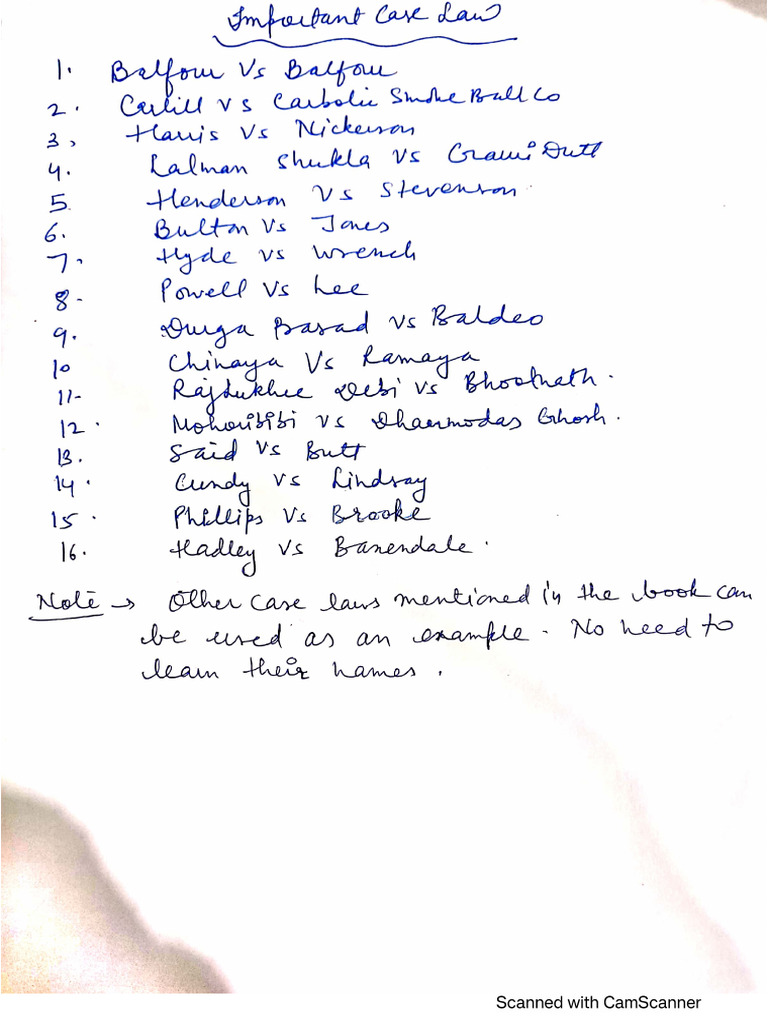 Important Case Law
1. Balfour Vs Balfour
2. Carlill vs Carbolic Smoke Ball Co
3, Harris Vs Nickerson
4. Lalman Shukla vs Gauri Dutt
5 Henderson Vs Stevenson
6. Bulton Vs Jones
7. Hyde vs Wrench
8- Powell Vs Lee
9. Durga Basad vs Baldeo
10 Chinaya Vs Ramaya
11- Rajdukhee Debi vs Bhootnath.
12. Mohoribibi vs Dharmodas Ghosh.
13. Said vs Butt
14. Cundy vs Lindsay
15. Phillips Vs Brooke
16. Hadley vs Baxendale.
Note → Other case laws mentioned in the book can
be used as an example. No need to
learn their names.
Scanned with CamScanner